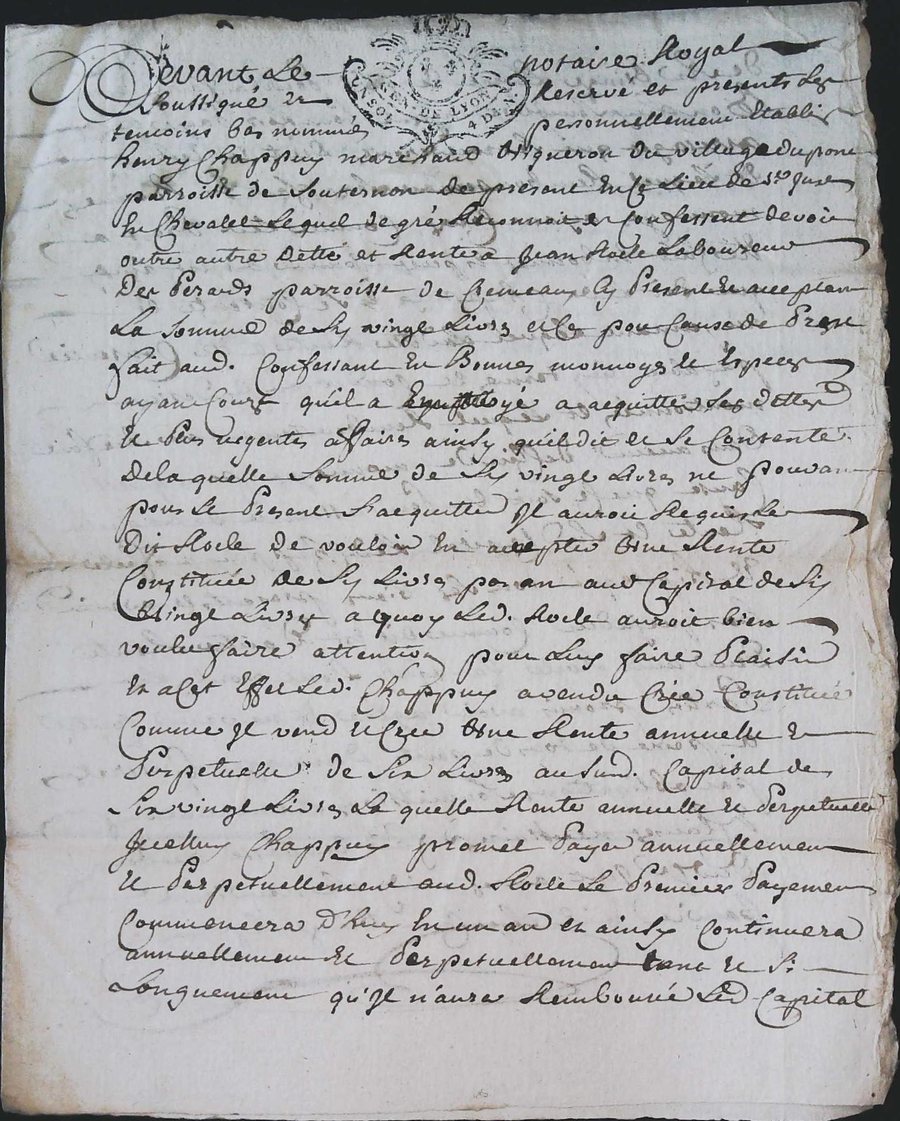 Devant Le notaire Royal
Soussigné et Reservé et presents Les
GEN. DE LYON
UN SOL 4 DEN.
temoins bas nommés personnellement Etablis
henry Chappuy marchand Vigneron du village du pont
parroisse de Souternon de présent En Ce Lieu de St Just
En Chevalet Lequel de gré Reconnoit et Confessent devoir
outre autre Dette et Rente a Jean Rocle Laboureur
Des Perards parroisse de Cremeaux Cy Present et acceptant
La Somme de Six vingt Livres et Ce pour Cause de Prest
fait aud. Confessant En Bonnes monnoyes et Especes
ayant Cours qu'il a Employé a acquitter Ses dettes
et Plus urgentes affaires ainsy quil dit et Se Contente
De laquelle Somme de Six vingt Livres ne pouvant
pour Le Present S'acquitter Il auroit Requis Le
Dit Rocle de vouloir En accepter Une Rente
Constituée de Six Livres par an aud Capital de Six
Vingt Livres a quoy Led. Rocle auroit bien
voulu faire attention pour Luy faire Plaisir
En a Cet Effet Led. Chappuy a vendu Crée Constitué
Comme Il vend et Crée Une Rente annuelle et
Perpetuelle de Six Livres au Susd. Capital de
Six vingt Livres La quelle Rente annuelle et Perpetuelle
Icelluy Chappuy promet Payer annuellement
et Perpetuellement aud. Rocle Le Premier Payement
Commencera D'huy En un an et ainsy Continuera
annuellement et Perpetuellement tant et Sy
Longuement qu'Il n'aura Remboursé Led Capital